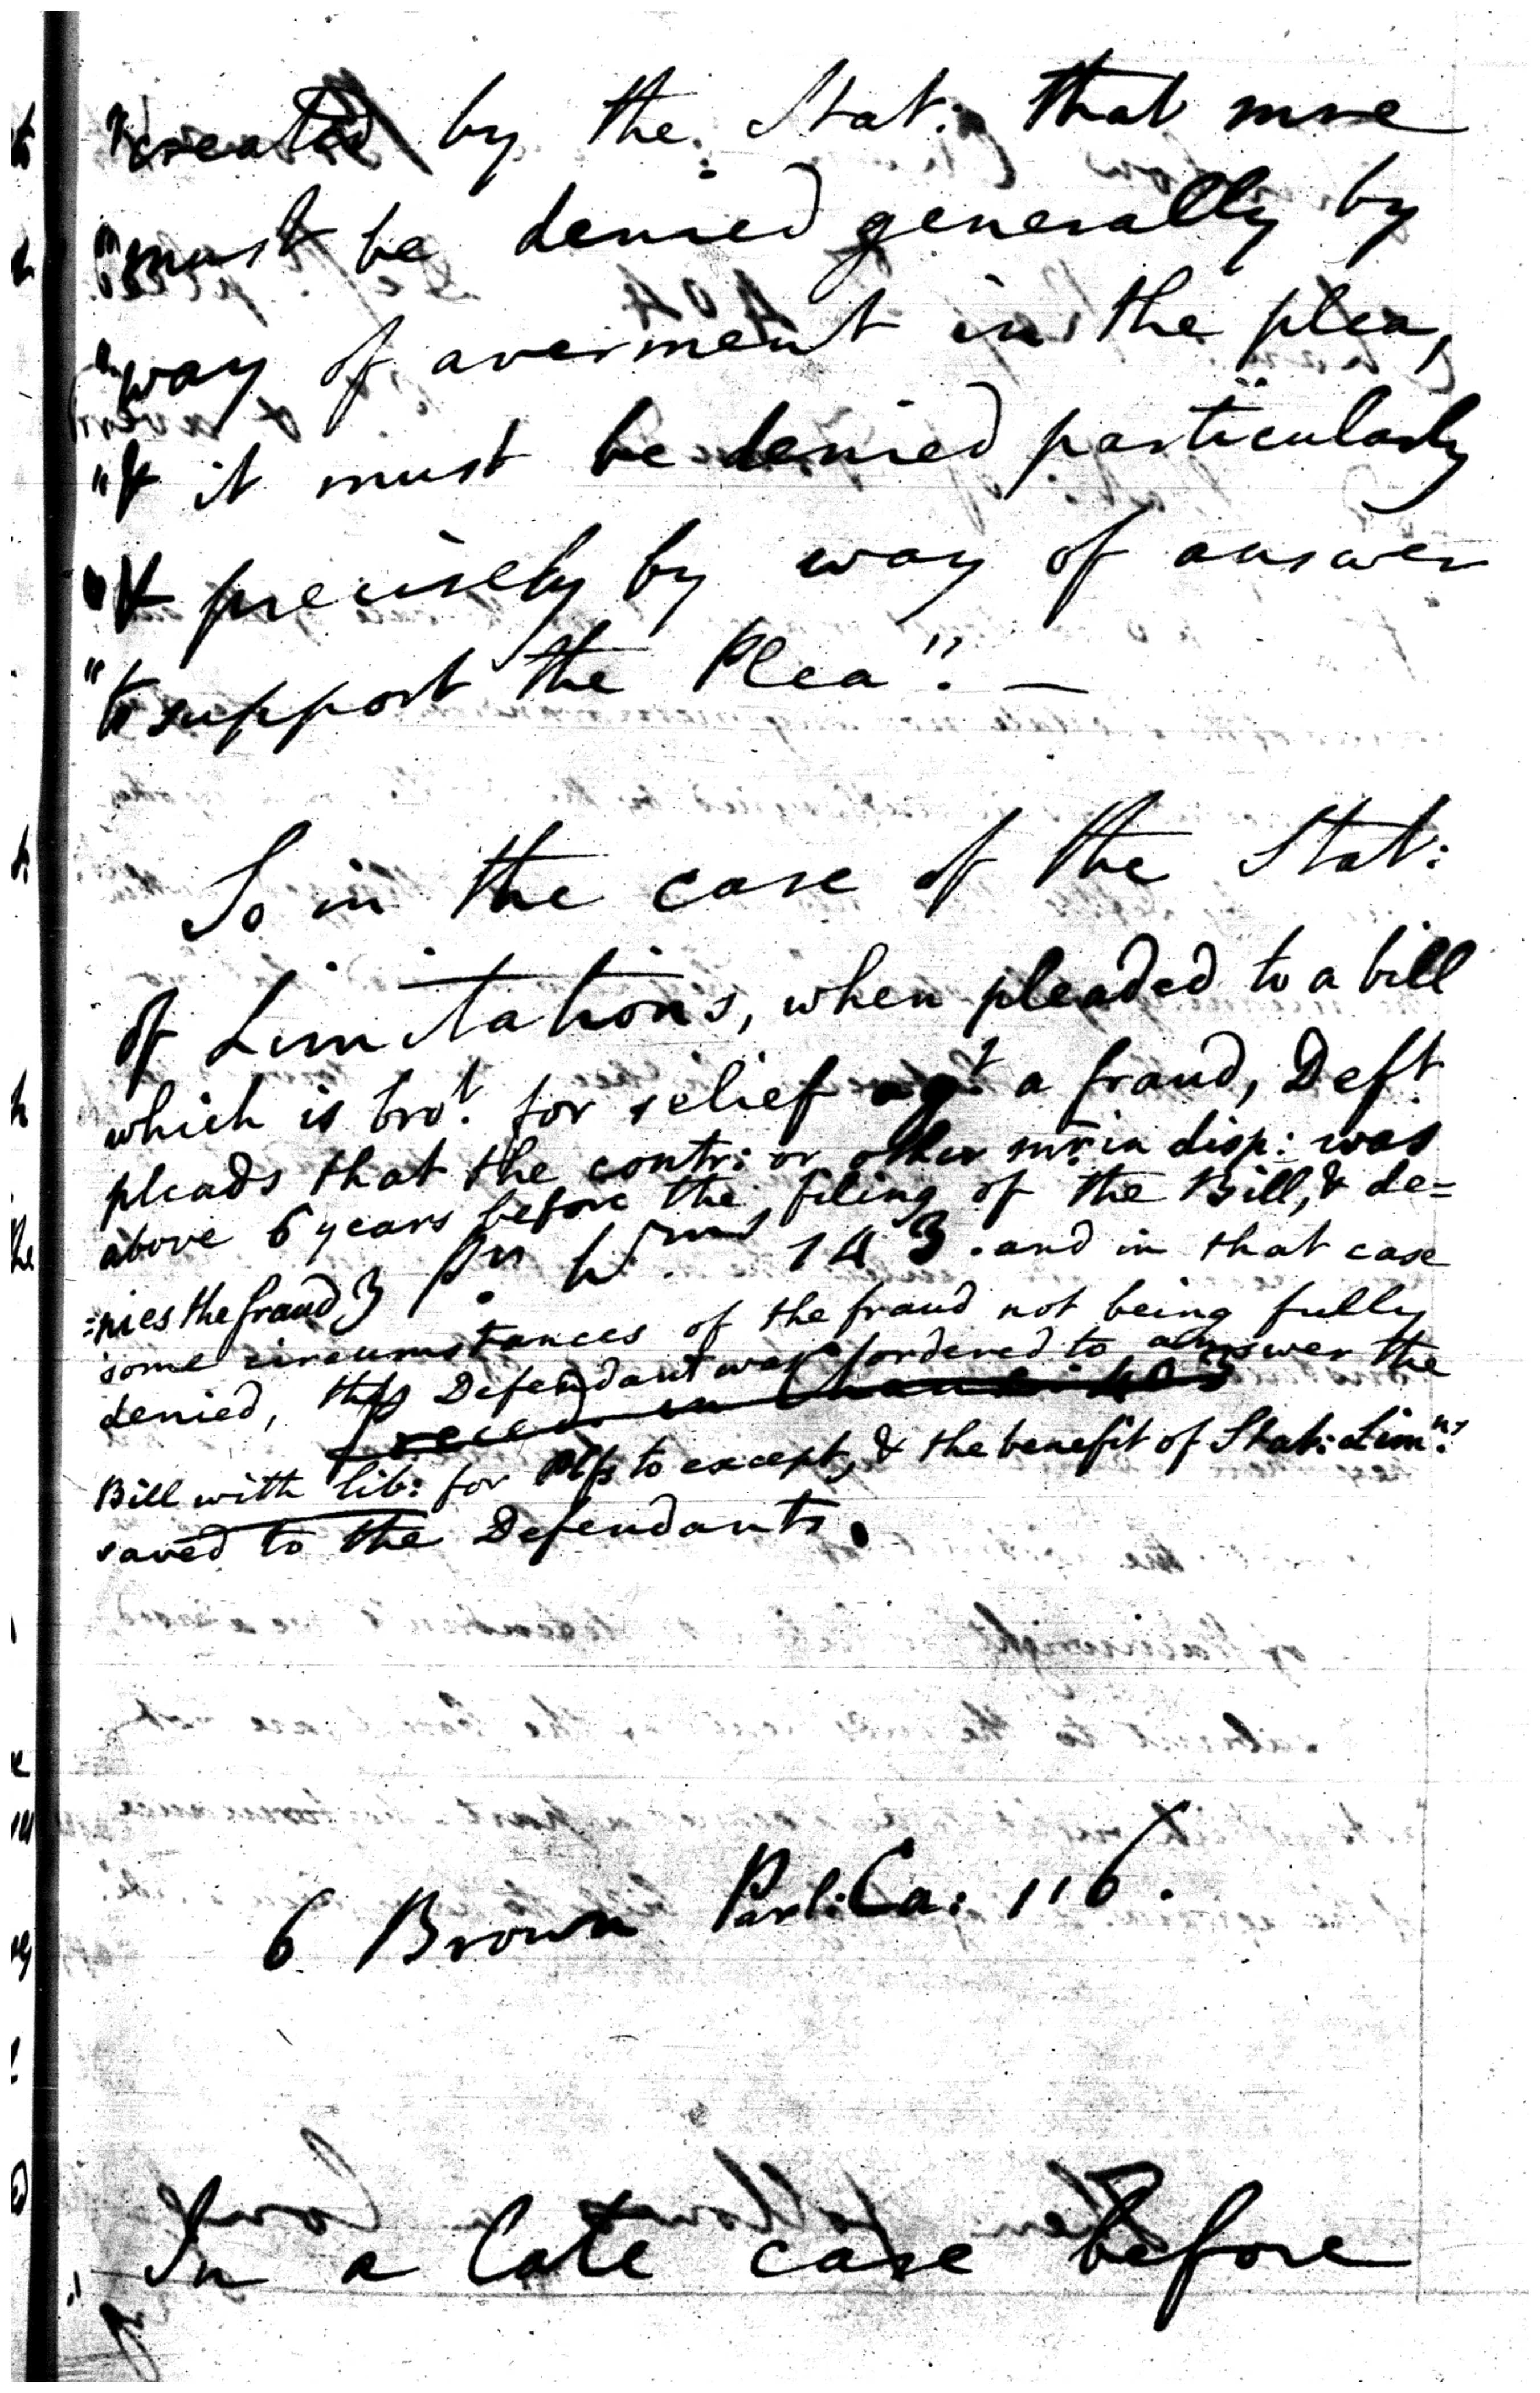 "created by the Stat: that mre
"must be denied generally by
"way of averment in the plea,
"& it must be denied particularly
"& precisely by way of answer
"to support the Plea". —
So in the case of the Stat:
of Limitations, when pleaded to a bill
which is brot. for relief agt. a fraud, Deft.
pleads that the contr: or other mr. in disp: was
above 6 years before the filing of the Bill, & de=
=nies the fraud 3 Pr. Wms. 143. and in that case
some circumstances of the fraud not being fully
denied, the Defendant was ordered to answer the
Bill with lib: for Plfs to except, & the benefit of Stat: Limns.
saved to the Defendants.
6 Brown Parl: Ca: 116.
In a late case before